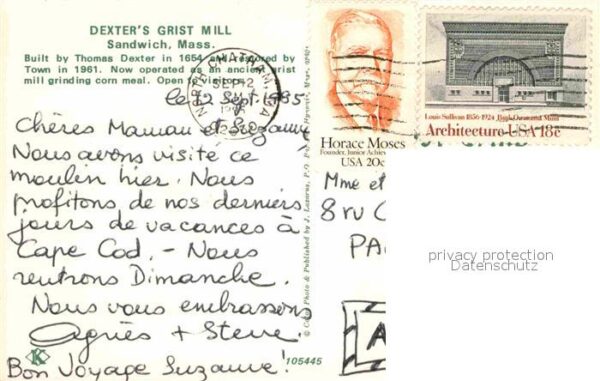 DEXTER'S GRIST MILL
Sandwich, Mass.
Built by Thomas Dexter in 1654 and restored by
Town in 1961. Now operated as an ancient grist
mill grinding corn meal. Open to visitors.
le 2 Sept. 1985
Chères Maman et Suzanne
Nous avons visité ce
moulin hier. Nous
profitons de nos derniers
jours de vacances à
Cape Cod. - Nous
rentrons Dimanche.
Nous vous embrassons
Agnès + Steve
Bon Voyage Suzanne!
K
105445
Photo & Published by J. Lazarus, P.O.
SEP 2
Horace Moses
Founder, Junior Achiev
USA 20c
Louis Sullivan 1856-1924 Bank Owatonna Minn
Architecture USA 18c
Mme et
8 ru
PA
privacy protection
Datenschutz
A